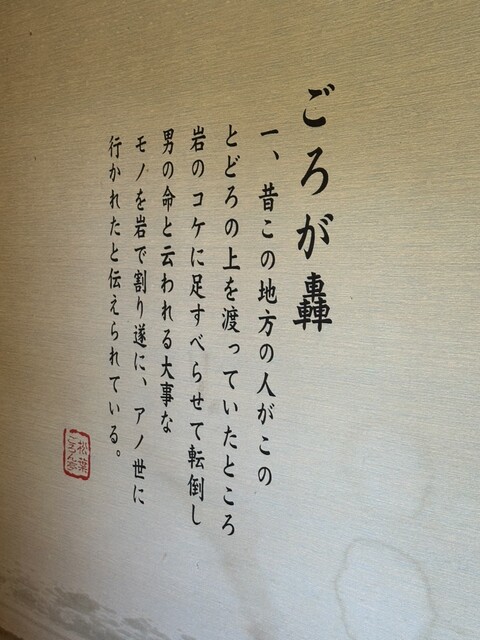 ごろが轟
一、昔この地方の人がこの
とどろの上を渡っていたところ
岩のコケに足すべらせて転倒し
男の命と云われる大事な
モノを岩で割り遂に、アノ世に
行かれたと伝えられている。
松葉